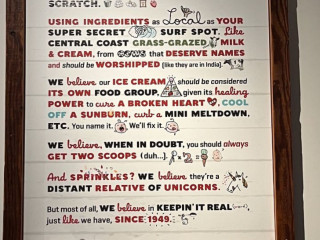 SCRATCH.
USING INGREDIENTS as Local as YOUR
SUPER SECRET SURF SPOT. Like
CENTRAL COAST GRASS-GRAZED MILK
& CREAM, from COWS that DESERVE NAMES
and should be WORSHIPPED [like they are in India].
WE believe our ICE CREAM should be considered
ITS OWN FOOD GROUP, given its healing
POWER to cure A BROKEN HEART, COOL
OFF A SUNBURN, curb a MINI MELTDOWN,
ETC. You name it. We'll fix it.
WE believe, WHEN IN DOUBT, you should always
GET TWO SCOOPS (duh...). x 2 =
And SPRINKLES? WE believe they're a
DISTANT RELATIVE OF UNICORNS.
But most of all, WE believe in KEEPIN' IT REAL
just like we have, SINCE 1949.